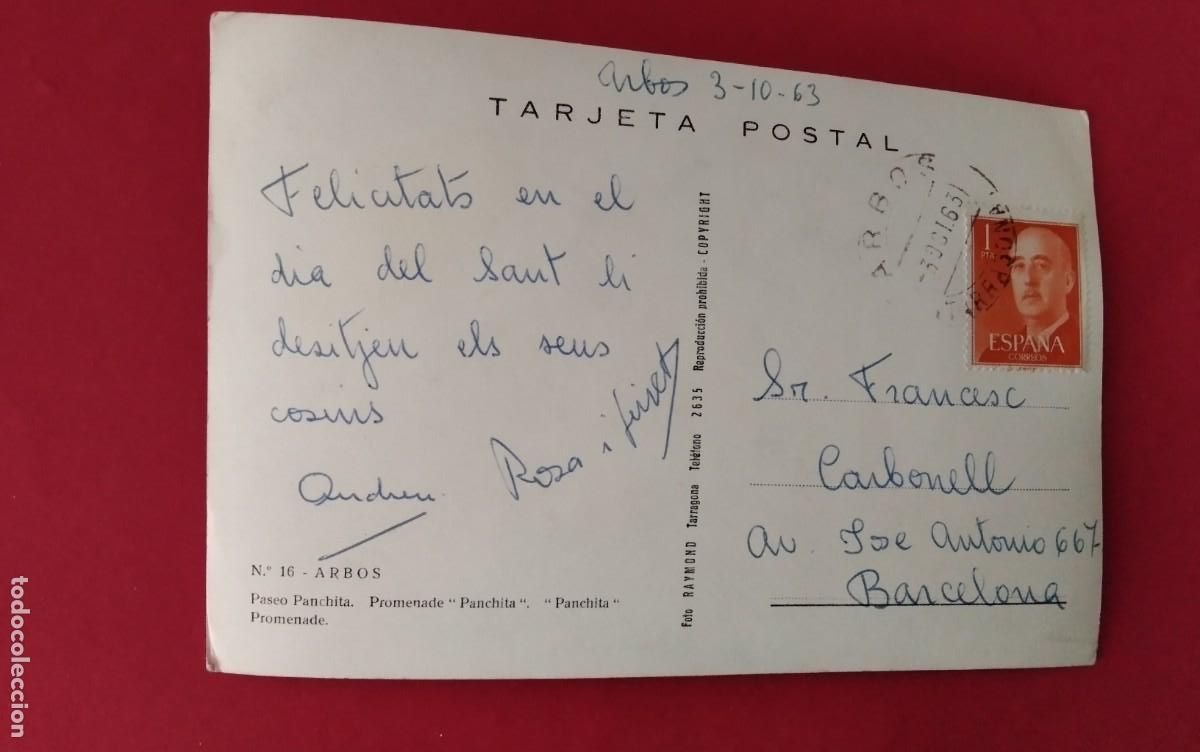 Arbos 3-10-63
TARJETA POSTAL
Felicitats en el
dia del Sant li
desitjen els seus
cosins
Andreu
Rosa i
Nº 16 - ARBOS
Paseo Panchita. Promenade " Panchita ". " Panchita "
Promenade.
Foto RAYMOND Tarragona Teléfono 2635 Reproducción prohibida - COPYRIGHT
ARBOS
-3 OCT 63
TARRAGONA
1
PTA
ESPAÑA
CORREOS
Sr. Francesc
Carbonell
Av. Jose Antonio 667
Barcelona
todocoleccion